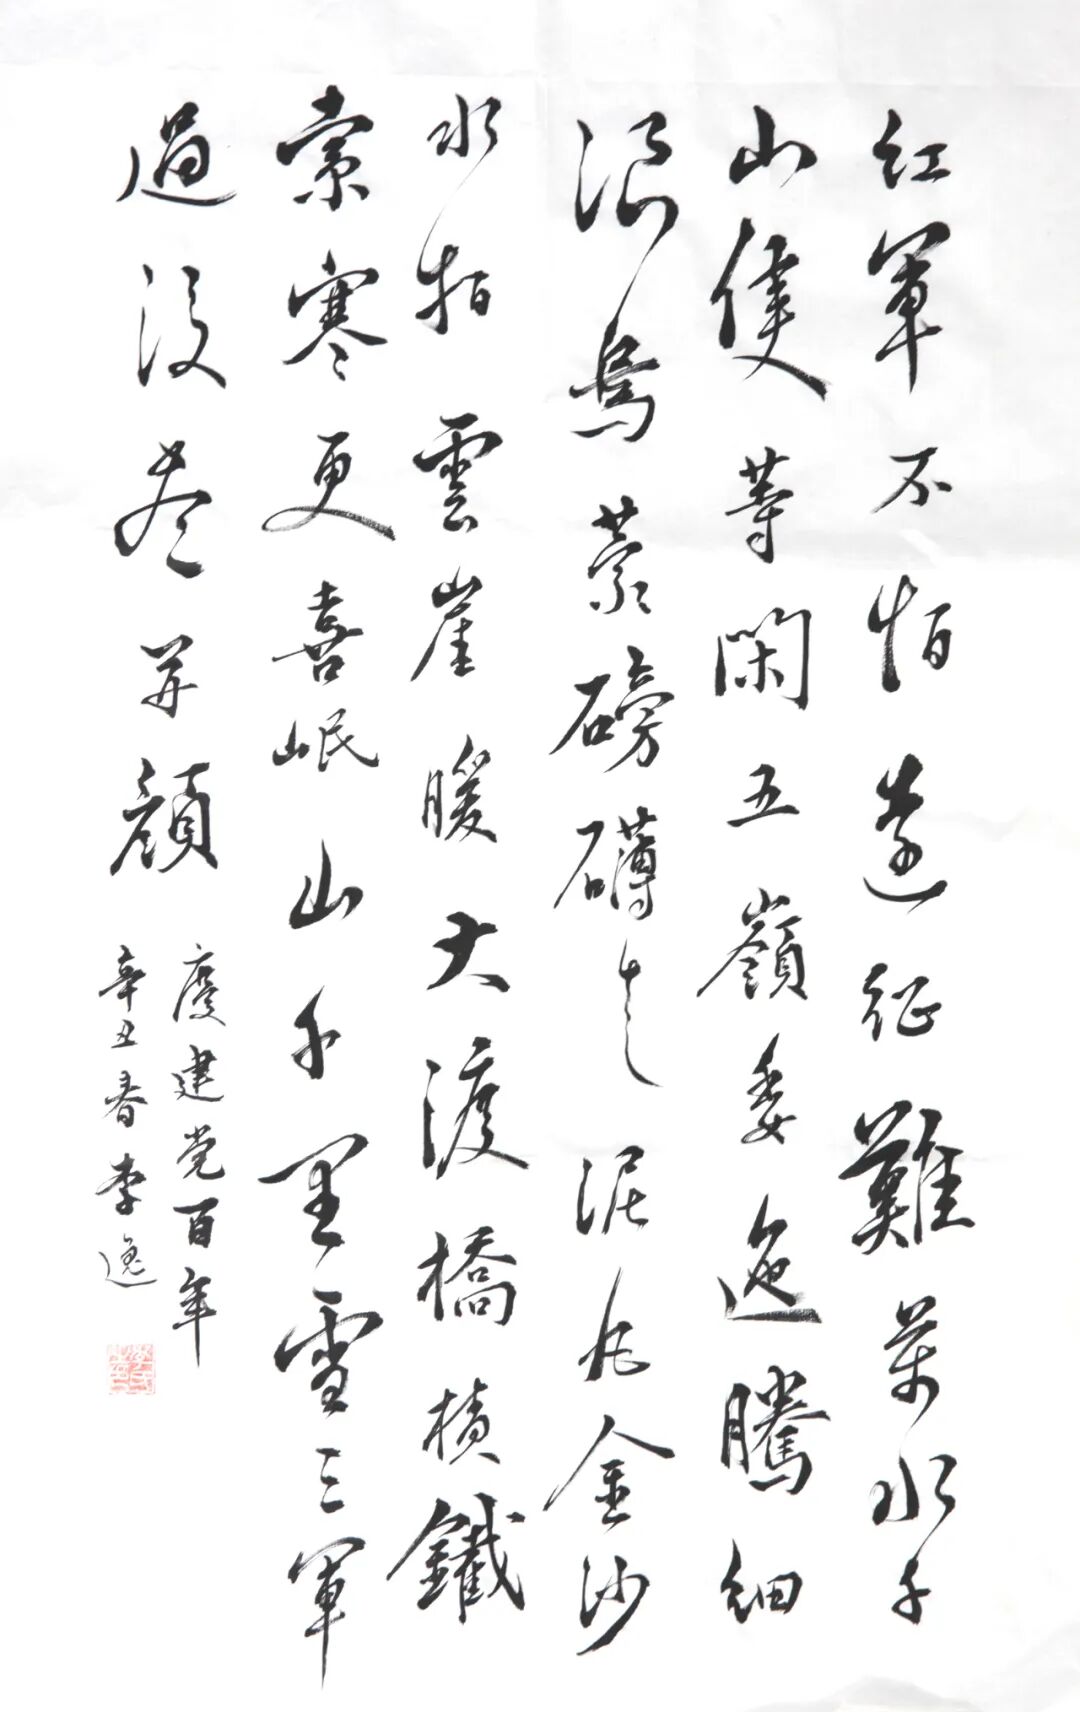 紅軍不怕遠征難萬水千
山隻等閑五嶺委迤騰細
浪烏蒙磅礴走泥丸金沙
水拍雲崖暖大渡橋横鐵
索寒更喜岷山千里雪三軍
過後尽开顔
慶建党百年
辛丑春李逸